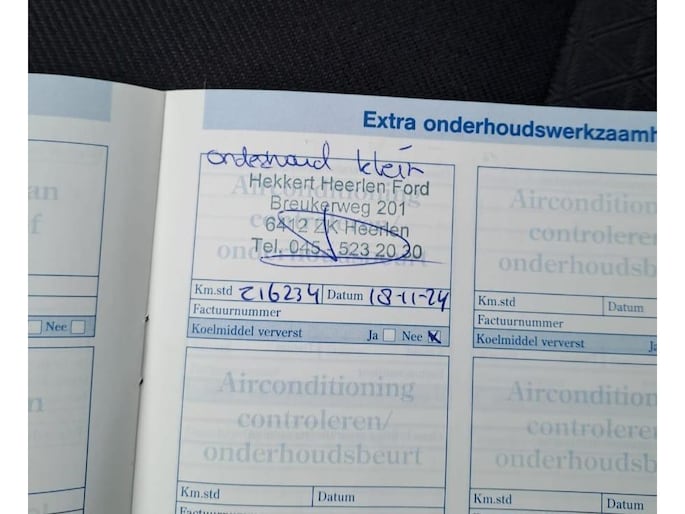 Extra onderhoudswerkzaamh
onderhoud klein
Hekkert Heerlen Ford
Breukerweg 201
6412 ZK Heerlen
Tel. 045 - 523 20 20
Km.std 216234 Datum 18-11-24
Factuurnummer
Koelmiddel ververst Ja Nee
Airconditioning
controleren/
onderhoudsbeurt
Km.std Datum
Airconditioning
controleren/
onderhoudsbeurt
Km.std Datum
Factuurnummer
Airconditionin
controleren
onderhoudsb
Km.std Datum
Factuurnummer
Koelmiddel ververst Ja
Airconditionin
controleren
onderhoudsb
Km.std Datum
an
f
Nee
n